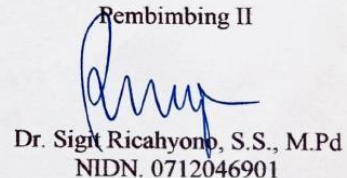 Pembimbing II
Dr. Sigit Ricahyono, S.S., M.Pd
NIDN. 0712046901